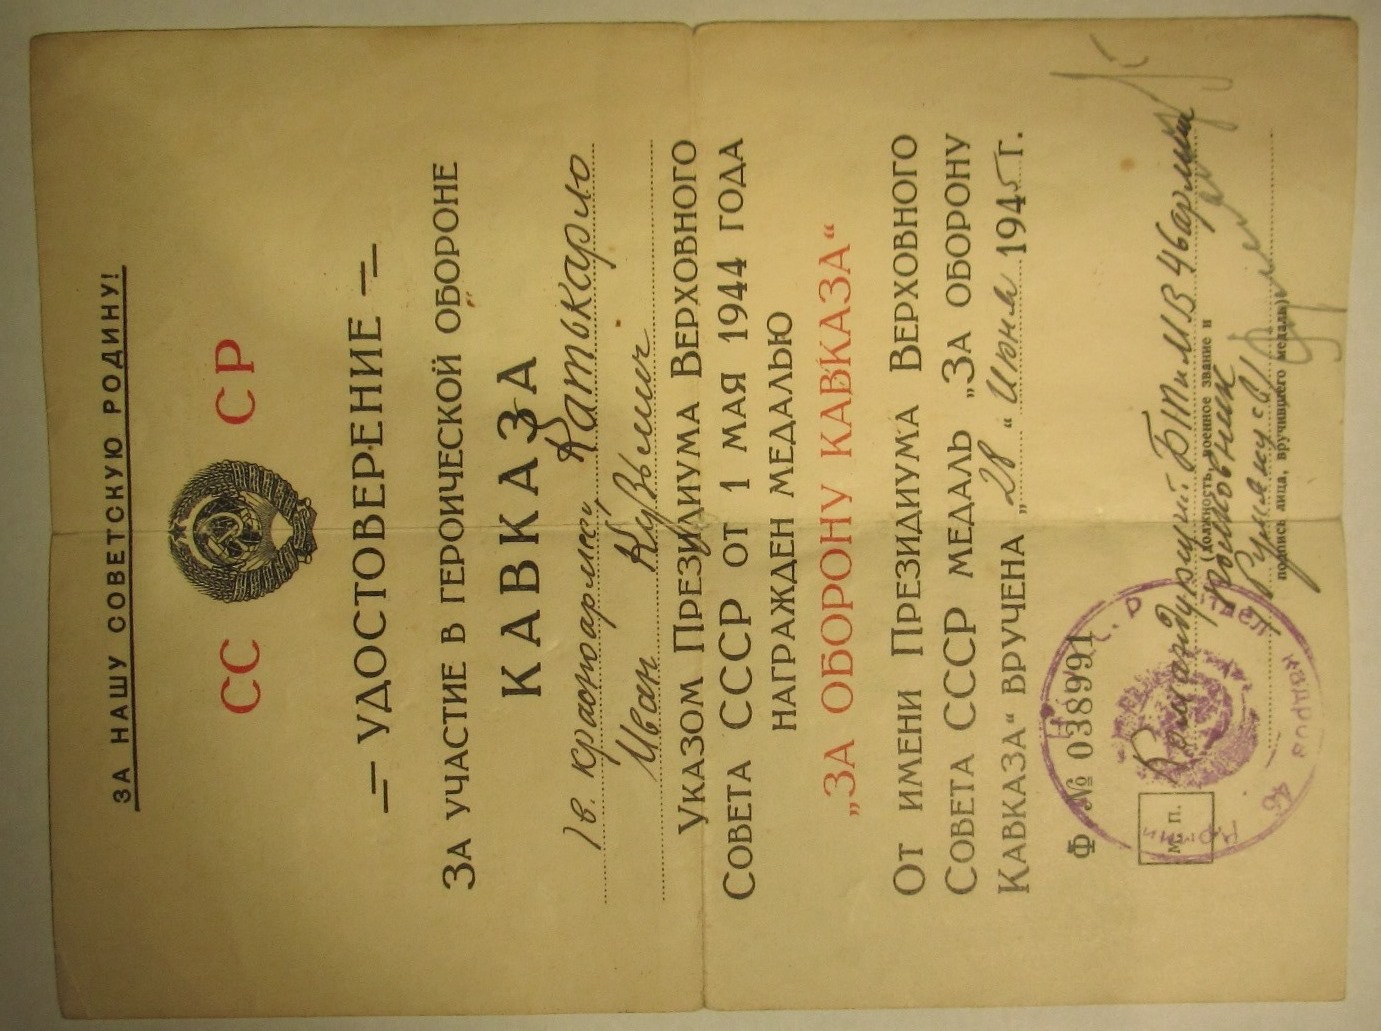 ЗА НАШУ СОВЕТСКУЮ РОДИНУ!
СС СР
УДОСТОВЕРЕНИЕ
За участие в героической обороне
КАВКАЗА
Катькарло
Иван Кузьмич
Указом Президиума Верховного
Совета СССР от 1 мая 1944 года
награжден медалью
„ЗА ОБОРОНУ КАВКАЗА“
От имени Президиума Верховного
Совета СССР медаль „За оборону
Кавказа“ вручена „28“ Июня 1945 г.
Ф № 038991
Командующий БТиМВ 46 армии
(должность, военное звание и
полковник
подпись лица, вручившего медаль)
М. П.